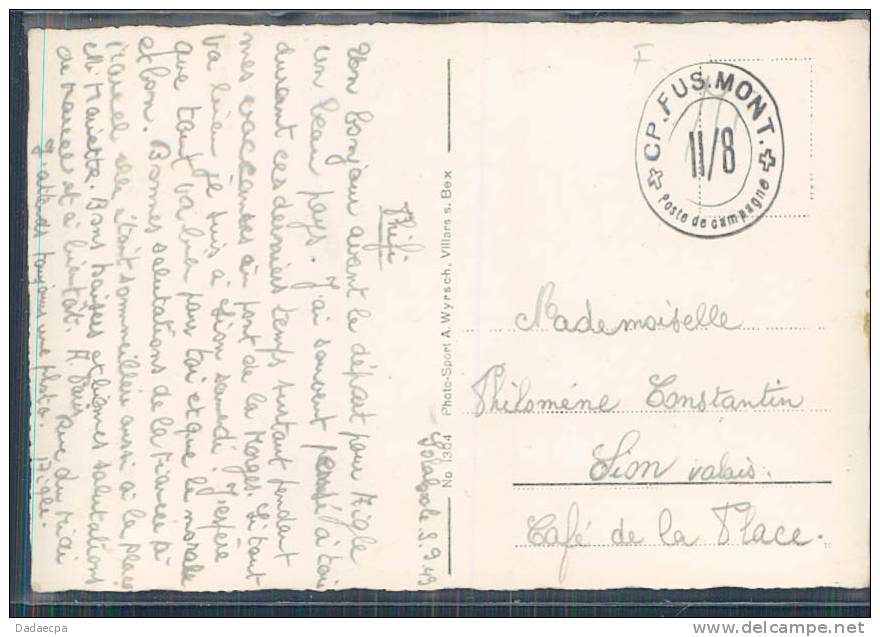 Solalex le 5.9.49
Phifi
Un bonjour avant le départ pour Aigle
un beau pays. J'ai souvent pensé à toi
durant ces derniers temps surtout pendant
mes vaccances au pont de la Morge. Si tout
va bien je suis à Sion samedi. J'espère
que tout va bien pour toi et que le morale
et bon. Bonnes salutations de la à
Marcel elle était sommeillée aussi à la place
et Mariette. Bons baisers et bonnes salutations
de Marcel et à bientôt.
rue du Midi
J'attends toujours une photo. Aigle.
No 1384 Photo-Sport A. Wyrsch, Villars s. Bex
F
CP. FUS. MONT.
II/8
Poste de campagne
Mademoiselle
Philomène Constantin
Sion valais.
Café de la Place.
Dadaecpa
www.delcampe.net